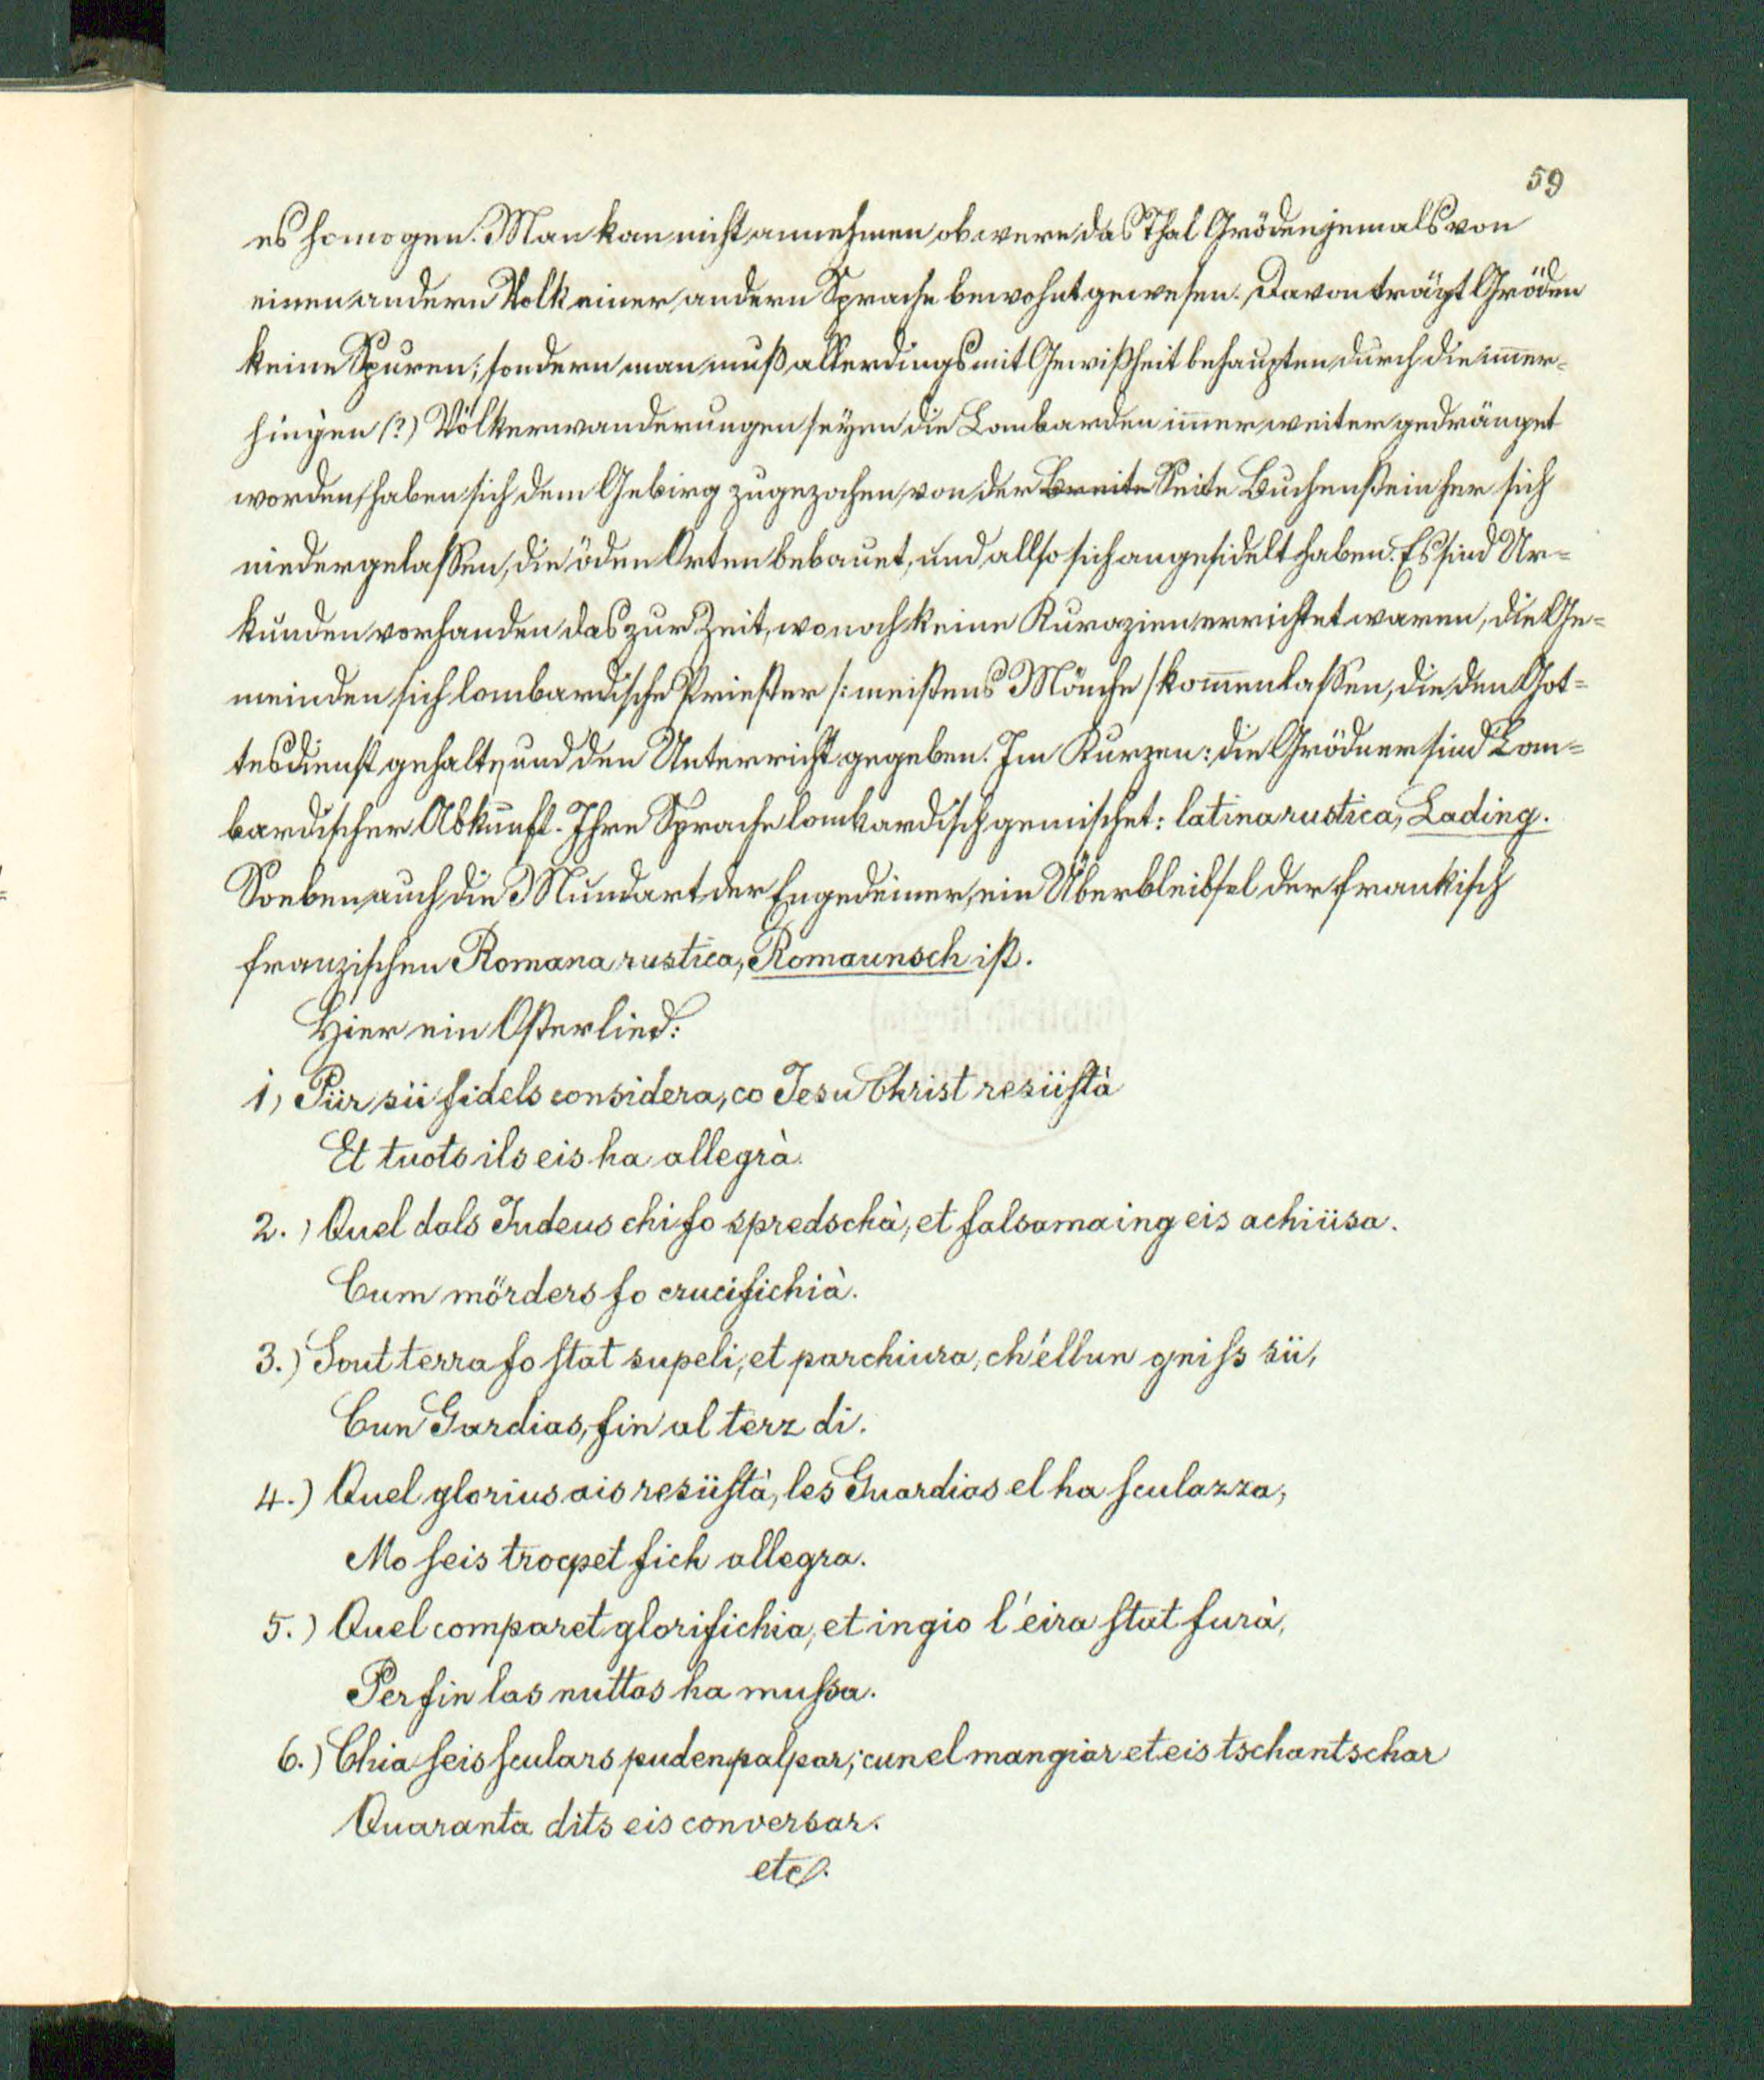 59
es homogen. Man kan nicht annehmen ob were das Thal Gröden jemals von
einen andern Volk einer andern Sprache bewohnt gewesen. Davon trägt Gröden
keine Spuren; sondern man muß allerdings mit Gewißheit behaupten durch die im̅er-
hingen (?) Völkerwanderungen seyen die Lombarden im̅er weiter gedränget
worden, haben sich dem Gebirg zugezochen, von der Breite Seite Buchenstein her sich
niedergelassen, die öden Orten bebauet, und allso sich angesidelt haben. Es sind Ur-
kunden vorhanden das zur Zeit, wo noch keine Kurazien errichtet waren, die Ge-
meinden sich lombardische Priester /: meistens Mönche / kom̅en lassen, die den Got-
tesdienst gehalten, und den Unterricht gegeben. Im Kurzen: die Grödner sind Lom-
bardischer Abkunft. Ihre Sprache lombardisch gemischet: latina rustica, Lading.
So eben auch die Mundart der Engedeiner, ein Überbleibsel der frankisch
französischen Romana rustica, Romaunsch ist.
Hier ein Osterlied:
1) Pür sü fidels considera, co Jesu Christ resüstà
Et tuots ils eis ha allegrà.
2.) Quel dals Judeus chi fo spredschà, et falsamaing eis achiüsa.
Cum mörders fo crucifichià.
3.) Sout terra fo stat supeli, et parchiura, ch'ellun gniss sü,
Cun Gardias, fin al terz di.
4.) Quel glorius ais resüstà, les Guardias el ha sculazza,
Mo seis trocpet fich allegra.
5.) Quel comparet glorifichia, et ingio l'eira stat furà,
Perfin las nuttas ha mussa.
6.) Chia seis sculars puden palpar; cun el mangiar et eis tschantschar
Quaranta dits eis conversar.
etc.